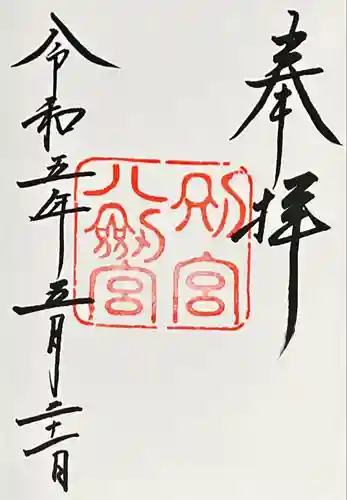 奉拝
別宮
八劔宮
令和五年五月二十一日